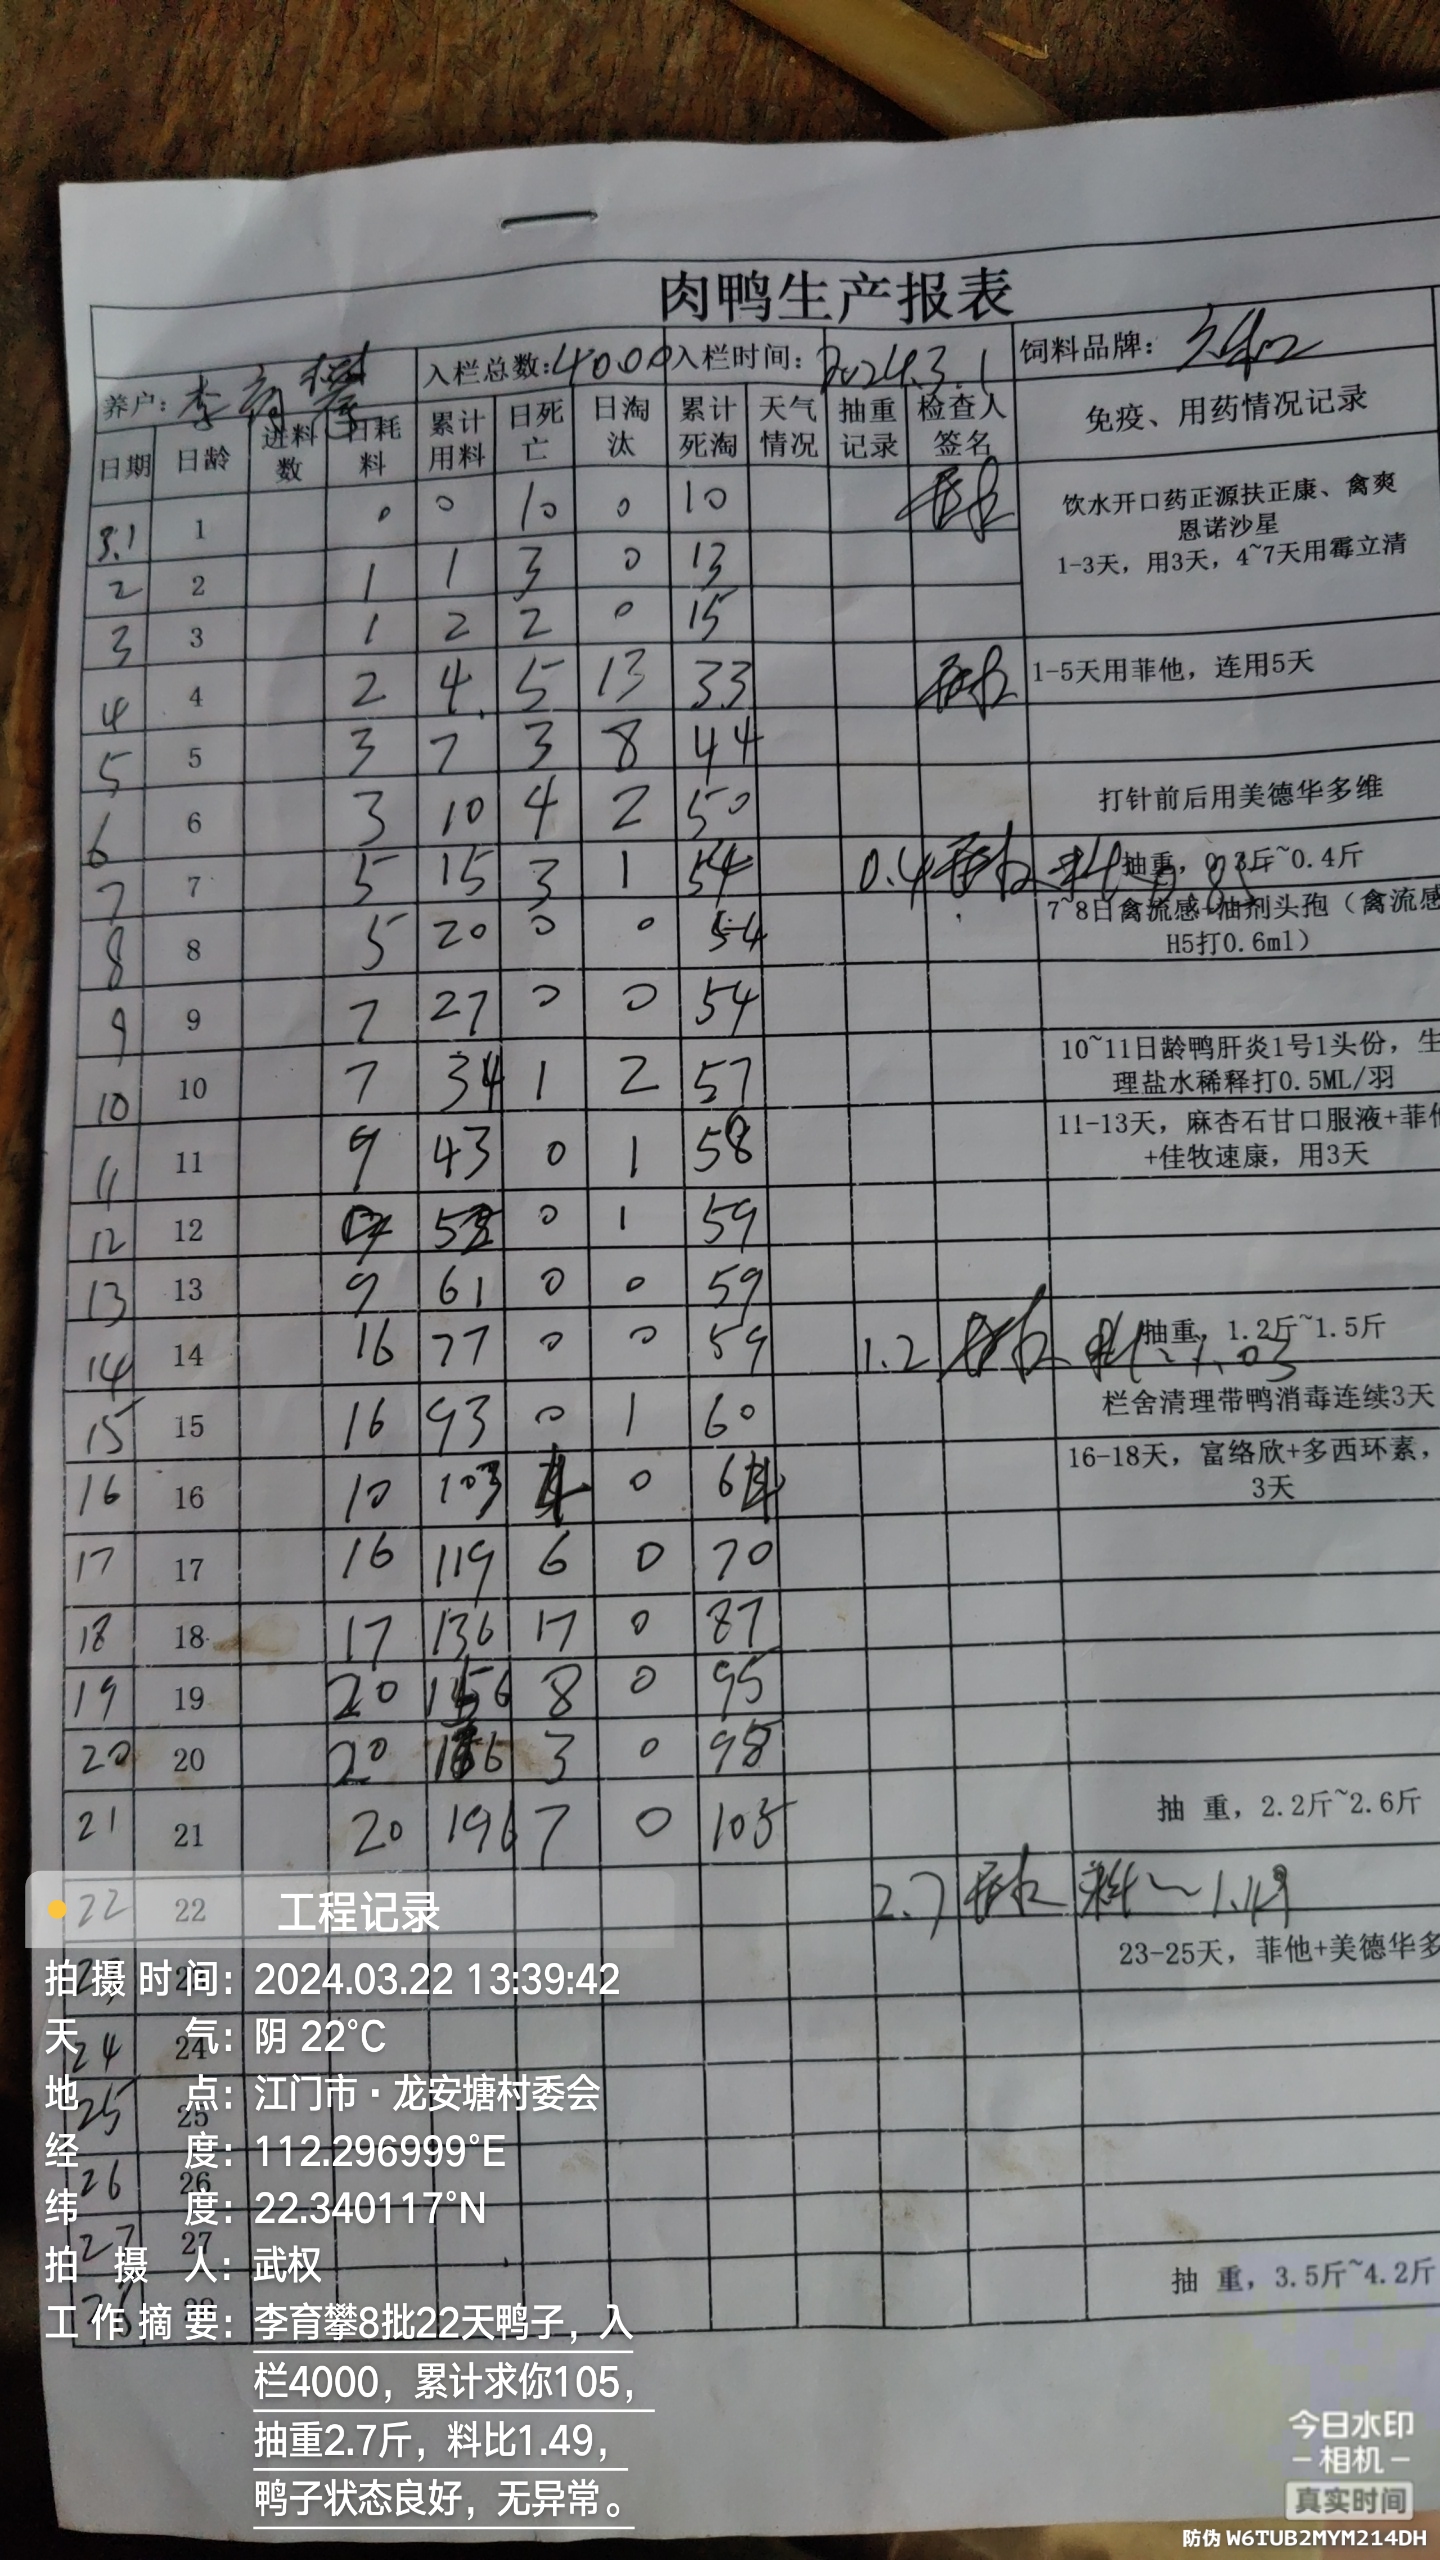 肉鸭生产报表
养户：李育攀 入栏总数：4000 入栏时间：2024.3.1 饲料品牌：
日期 日龄 进料数 日耗料 累计用料 日死亡 日淘汰 累计死淘 天气情况 抽重记录 检查人签名 免疫、用药情况记录
3.1 1 0 0 10 0 10 饮水开口药正源扶正康、禽爽
恩诺沙星
1-3天，用3天，4~7天用霉立清
2 2 1 1 3 0 13
3 3 1 2 2 0 15
4 4 2 4 5 13 33 1-5天用菲他，连用5天
5 5 3 7 3 8 44
6 6 3 10 4 2 50 打针前后用美德华多维
7 7 5 15 3 1 54 0.4 抽重，0.3斤~0.4斤
8 8 5 20 0 0 54 7~8日禽流感+油剂头孢（禽流感
H5打0.6ml）
9 9 7 27 0 0 54
10 10 7 34 1 2 57 10~11日龄鸭肝炎1号1头份，生
理盐水稀释打0.5ML/羽
11 11 9 43 0 1 58 11-13天，麻杏石甘口服液+菲他
+佳牧速康，用3天
12 12 52 0 1 59
13 13 9 61 0 0 59
14 14 16 77 0 0 59 1.2 抽重，1.2斤~1.5斤
15 15 16 93 0 1 60 栏舍清理带鸭消毒连续3天
16 16 10 103 4 0 64 16-18天，富络欣+多西环素，
3天
17 17 16 119 6 0 70
18 18 17 136 17 0 87
19 19 20 156 8 0 95
20 20 20 3 0 98
21 21 20 196 7 0 105 抽 重，2.2斤~2.6斤
22 22 2.7 料~1.49
23-25天，菲他+美德华多
24 24
25 25
26 26
27 27
抽 重，3.5斤~4.2斤
工程记录
拍摄时间：2024.03.22 13:39:42
天气：阴 22°C
地点：江门市·龙安塘村委会
经度：112.296999°E
纬度：22.340117°N
拍摄人：武权
工作摘要：李育攀8批22天鸭子，入
栏4000，累计求你105，
抽重2.7斤，料比1.49，
鸭子状态良好，无异常。
今日水印
相机
真实时间
防伪 W6TUB2MYM214DH